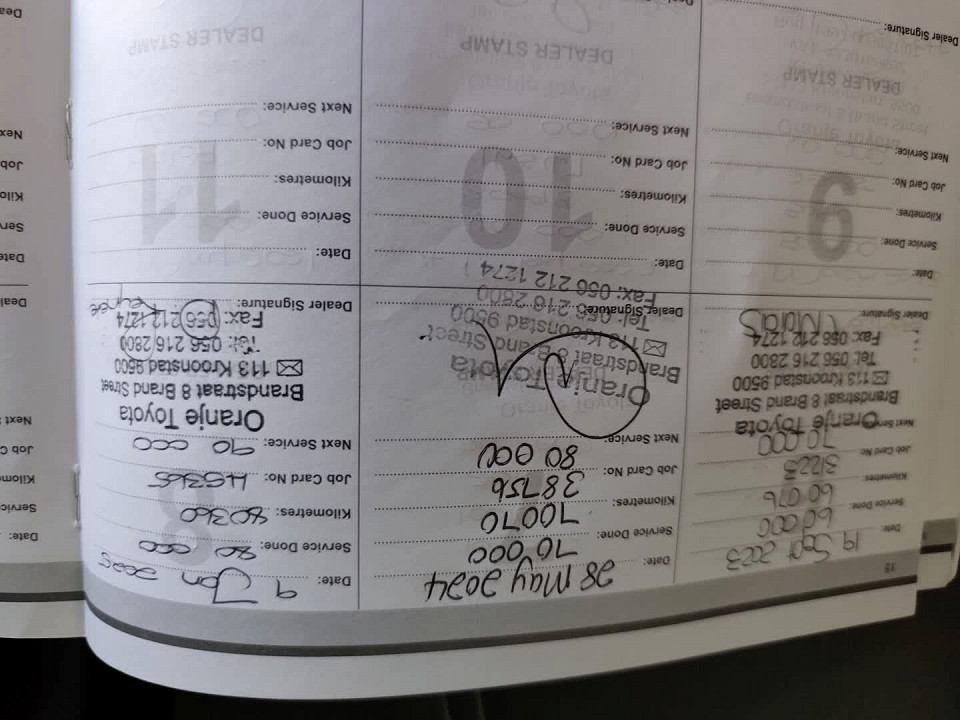 15
Date: 19 Sept 2023
Service Done: 60 000
Kilometres: 60 076
Job Card No: 31223
Next Service: 70 000
Oranje Toyota
Brandstraat 8 Brand Street
113 Kroonstad 9500
Tel: 056 216 2800
Fax: 056 212 1274
Dealer Signature:
Date: 28 May 2024
Service Done: 70 000
Kilometres: 70070
Job Card No: 38756
Next Service: 80 000
Oranje Toyota
Brandstraat 8 Brand Street
113 Kroonstad 9500
Tel: 056 216 2800
Fax: 056 212 1274
Dealer Signature:
8
Date: 9 Jan 2025
Service Done: 80 000
Kilometres: 80360
Job Card No: 45365
Next Service: 90 000
Oranje Toyota
Brandstraat 8 Brand Street
113 Kroonstad 9500
Tel: 056 216 2800
Fax: 056 212 1274
Dealer Signature:
9
Date:
Service Done:
Kilometres:
Job Card No:
Next Service:
DEALER STAMP
Dealer Signature:
10
Date:
Service Done:
Kilometres:
Job Card No:
Next Service:
DEALER STAMP
11
Date:
Service Done:
Kilometres:
Job Card No:
Next Service:
DEALER STAMP